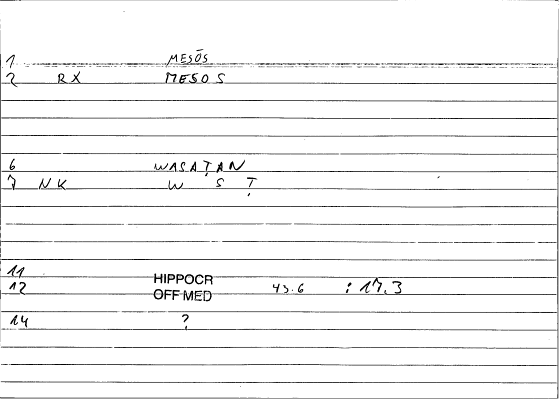 1 MESŌS
2 RX MESOS
6 WASAṬAN
7 NK W S Ṭ
11
12 HIPPOCR OFF MED 45.6 : 17.3
14 ?